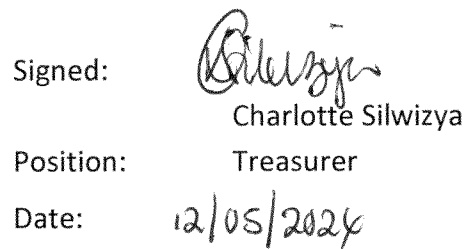 Signed:
Charlotte Silwizya
Position: Treasurer
Date: 12/05/2024